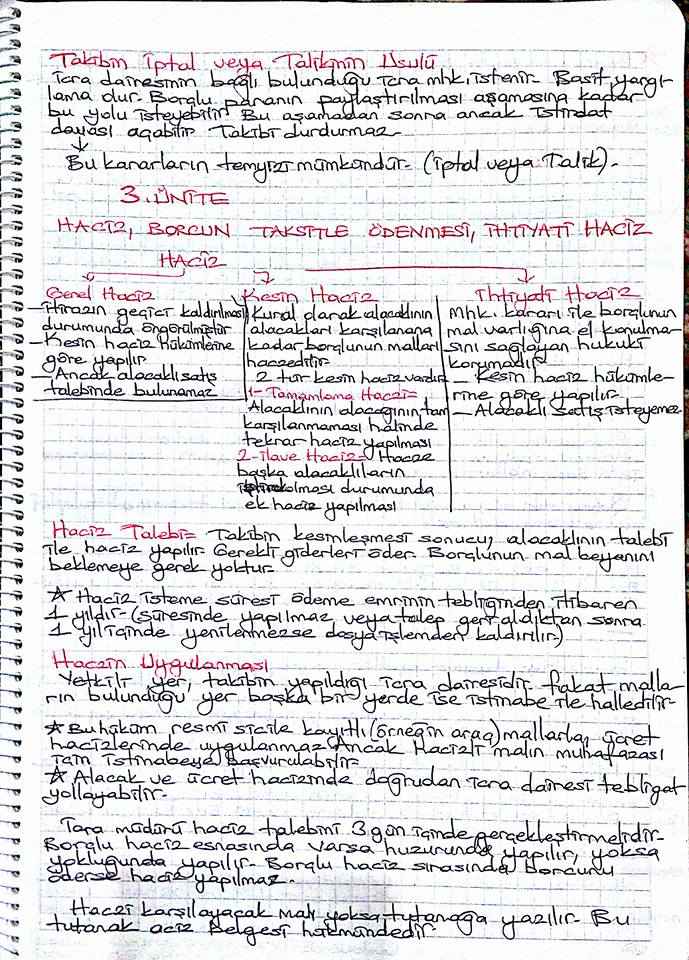 Takibin İptal veya Talikinin Usulü
icra dairesinin bağlı bulunduğu icra mhk. istenir. Basit yargı-
lama dur. Borçlu paranın paylaştırılması aşamasına kadar
bu yolu isteyebilir. Bu aşamadan sonra ancak istirdat
davası açabilir. Takibi durdurmaz.
Bu kararların temyizi mümkündür. (iptal veya Talik).
3. ÜNİTE
HACİZ, BORCUN TAKSİTLE ÖDENMESİ, İHTİYATİ HACİZ
HACİZ
Genel Haciz
- itirazın geçici kaldırılması
durumunda öngörülmüştür
- Kesin haciz hükümlerine
göre yapılır
- Ancak alacaklı satış
talebinde bulunamaz
Kesin Haciz
Kural olarak alacaklının
alacakları karşılanana
kadar borçlunun malları
haczedilir
2 tür kesin haciz vardır
1- Tamamlama Haczi=
Alacaklının alacağının tam
karşılanmaması halinde
tekrar haciz yapılması
2- ilave Haciz= Hacze
başka alacaklıların
iştirak olması durumunda
ek haciz yapılması
İhtiyati Haciz
Mhk. kararı ile borçlunun
mal varlığına el konulma-
sını sağlayan hukuki
korumadır
- Kesin haciz hükümle-
rine göre yapılır.
- Alacaklı satış isteyemez
Haciz Talebi= Takibin kesinleşmesi sonucu, alacaklının talebi
ile haciz yapılır. Gerekli giderleri öder. Borçlunun mal beyanını
beklemeye gerek yoktur.
☆ Haciz isteme süresi ödeme emrinin tebliğinden itibaren
1 yıldır. (süresinde yapılmaz veya talep geri aldıktan sonra
1 yıl içinde yenilenmezse dosya işlemden kaldırılır)
Haczin Uygulanması
Yetkili yer, takibin yapıldığı icra dairesidir. fakat malla-
rın bulunduğu yer başka bir yerde ise istinabe ile halledilir.
☆ Bu hüküm resmi sicile kayıtlı (örneğin araç) mallarla, ücret
hacizlerinde uygulanmaz. Ancak Hacizli malın muhafazası
için istinabeye başvurulabilir.
☆ Alacak ve ücret haczinde doğrudan icra dairesi tebligat
yollayabilir.
İcra müdürü haciz talebini 3 gün içinde gerçekleştirmelidir.
Borçlu haciz esnasında varsa huzurunda yapılır, yoksa
yokluğunda yapılır. Borçlu haciz sırasında borcunu
öderse haciz yapılmaz.
Haczi karşılayacak malı yoksa tutanağa yazılır. Bu
tutanak aciz belgesi hükmündedir.